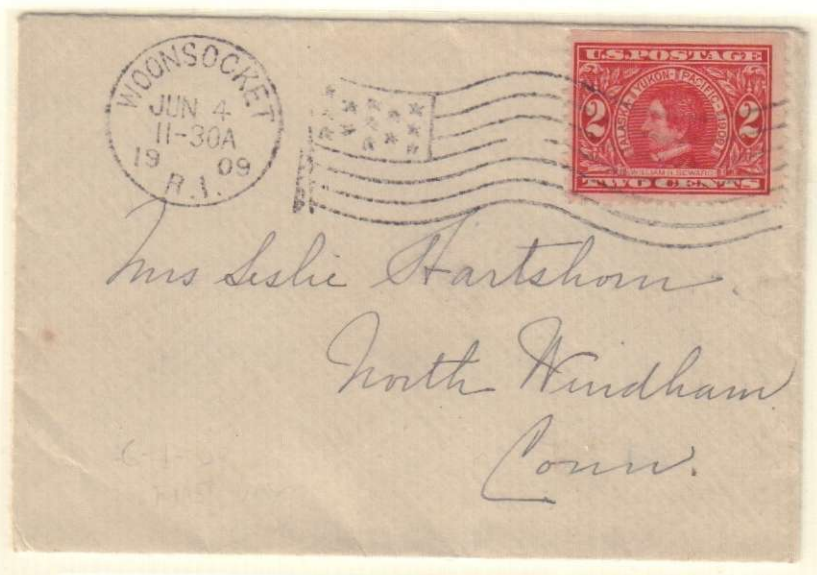 WOONSOCKET
JUN 4
11-30A
19 09
R.I.
U.S. POSTAGE
ALASKA-YUKON-PACIFIC-1909
2 2
WILLIAM H. SEWARD
TWO CENTS
Mrs Leslie Hartshorn.
North Windham
Conn.